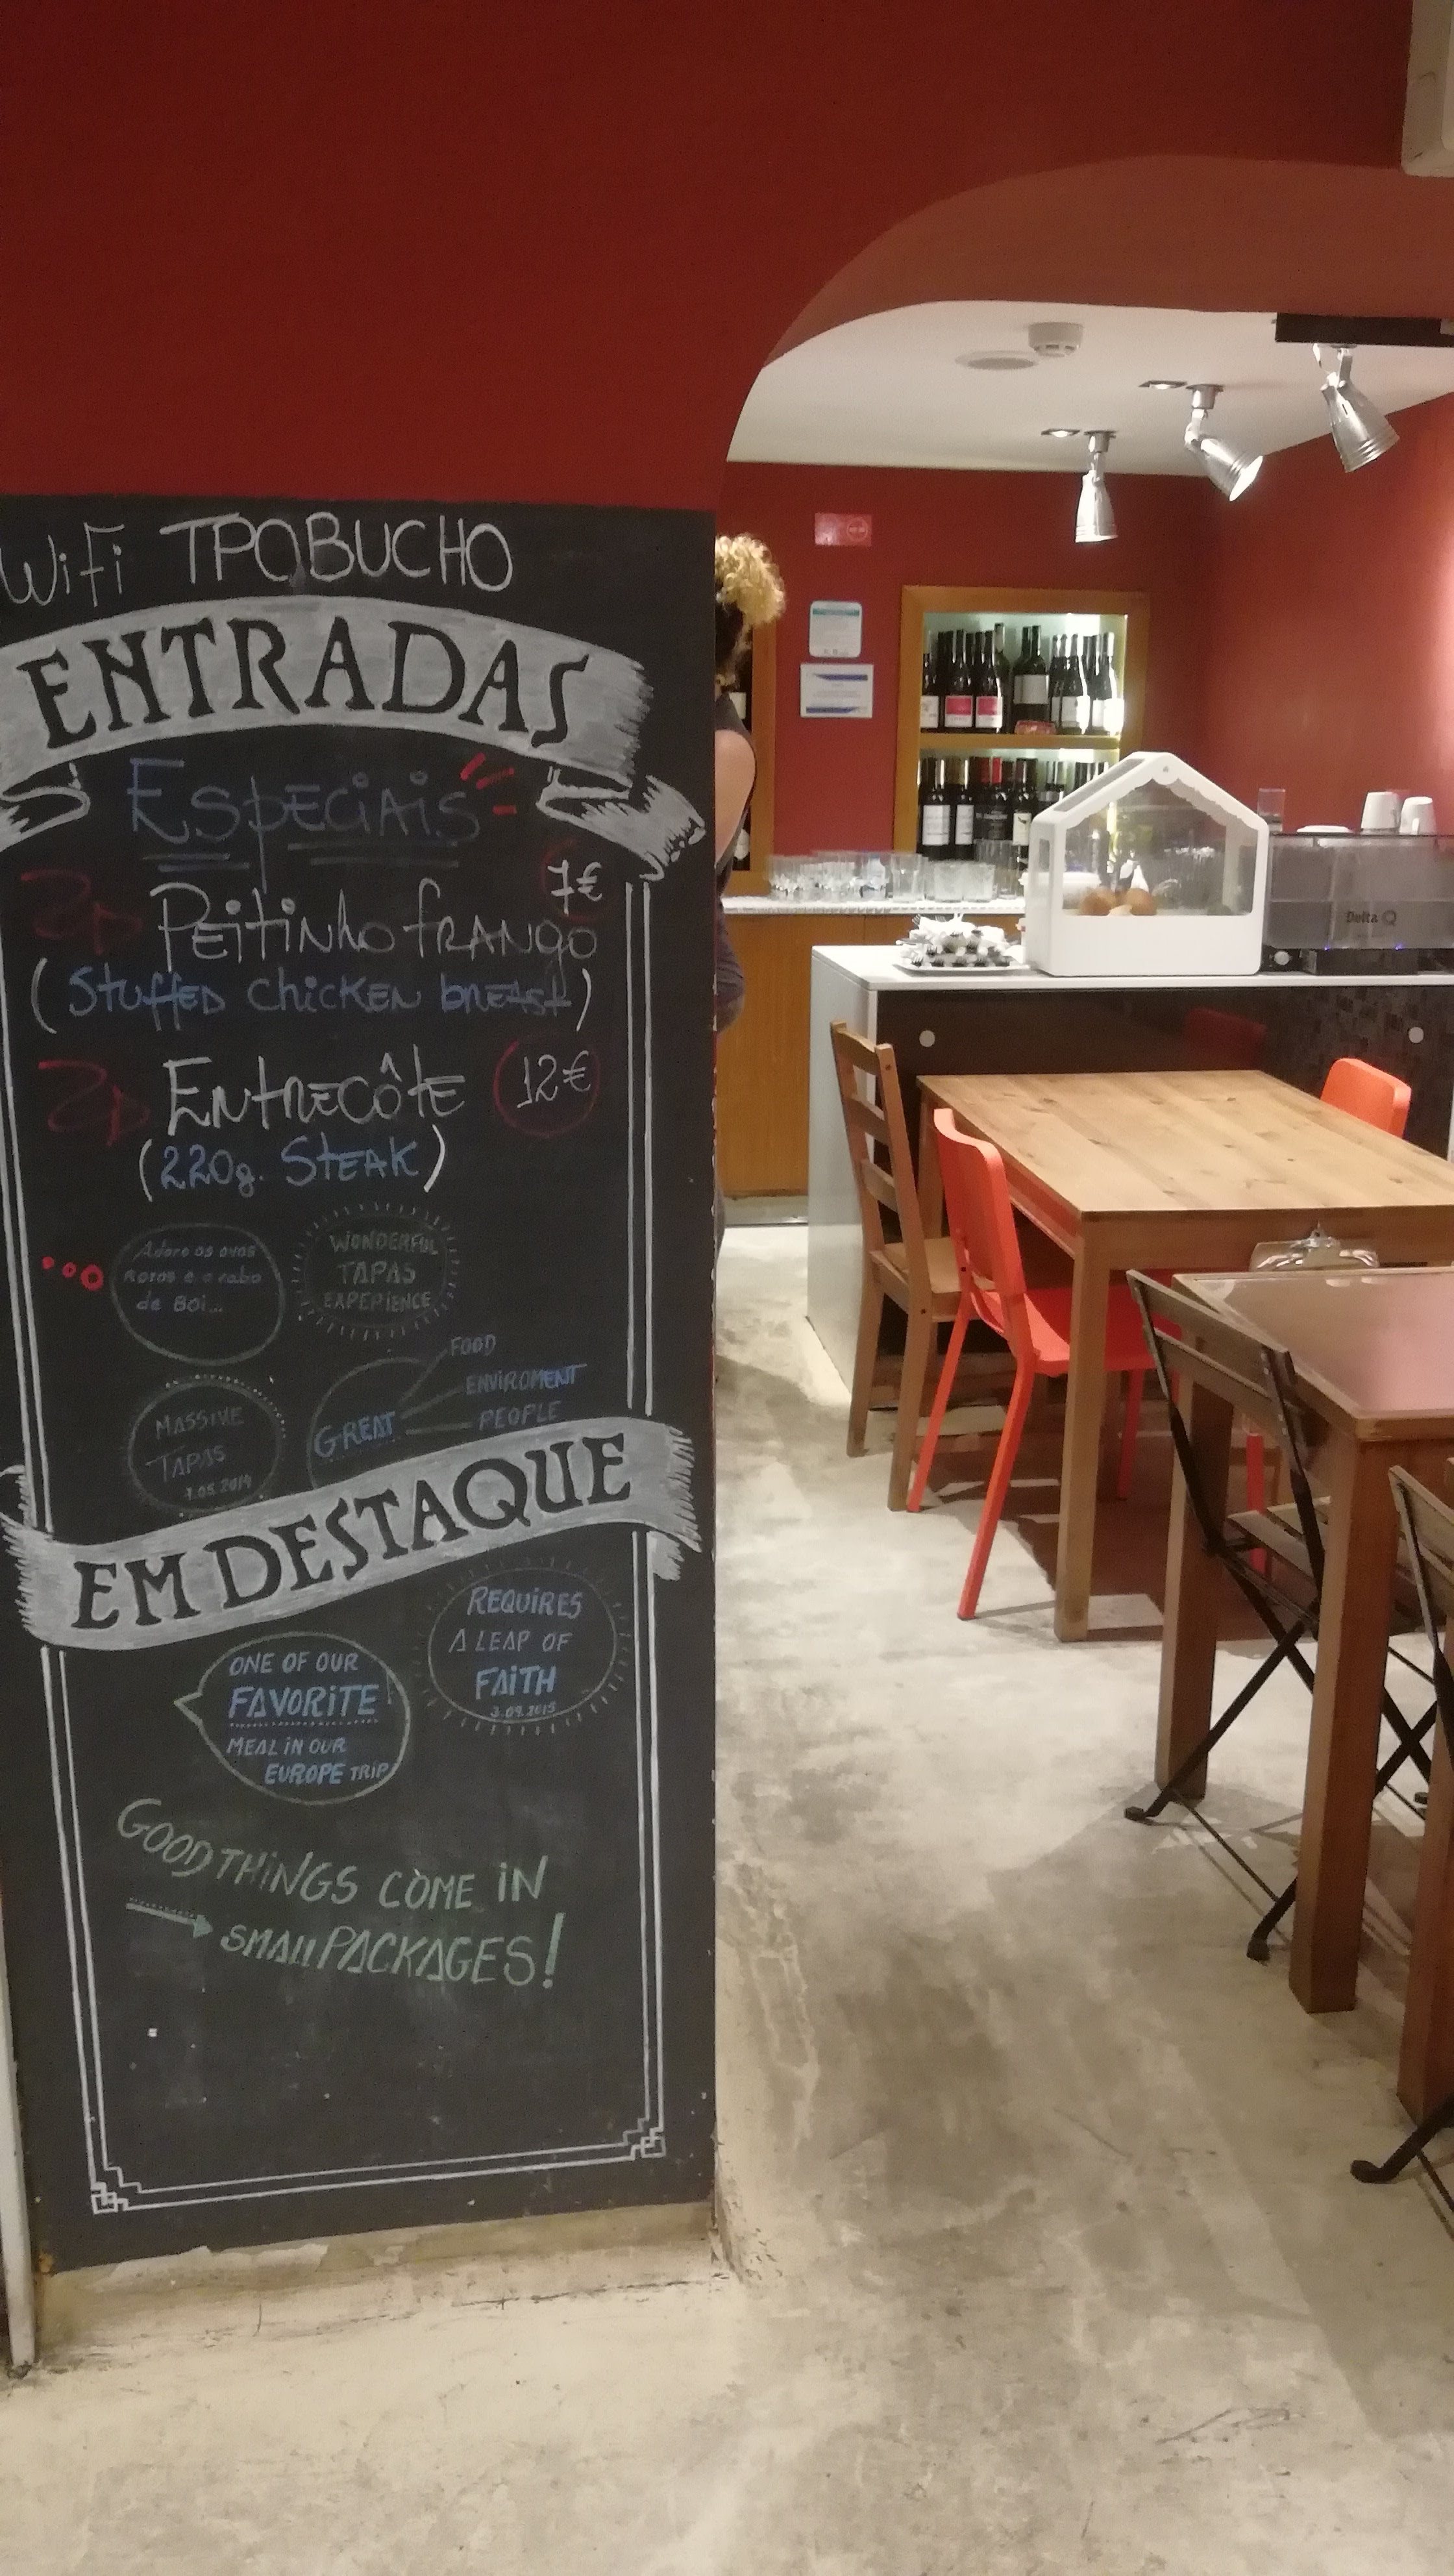 WiFi TPOBUCHO
ENTRADAS
Especiais
7€
Peitinho frango
(Stuffed chicken breast)
Entrecôte 12€
(220g. Steak)
Adoro os ovos
Rotos e o rabo
de Boi...
WONDERFUL
TAPAS
EXPERIENCE
MASSIVE
TAPAS
GREAT
FOOD
ENVIROMENT
PEOPLE
EM DESTAQUE
ONE OF OUR
FAVORITE
MEAL IN OUR
EUROPE TRIP
REQUIRES
A LEAP OF
FAITH
3.09.2015
GOOD THINGS COME IN
SMALL PACKAGES!
Delta Q